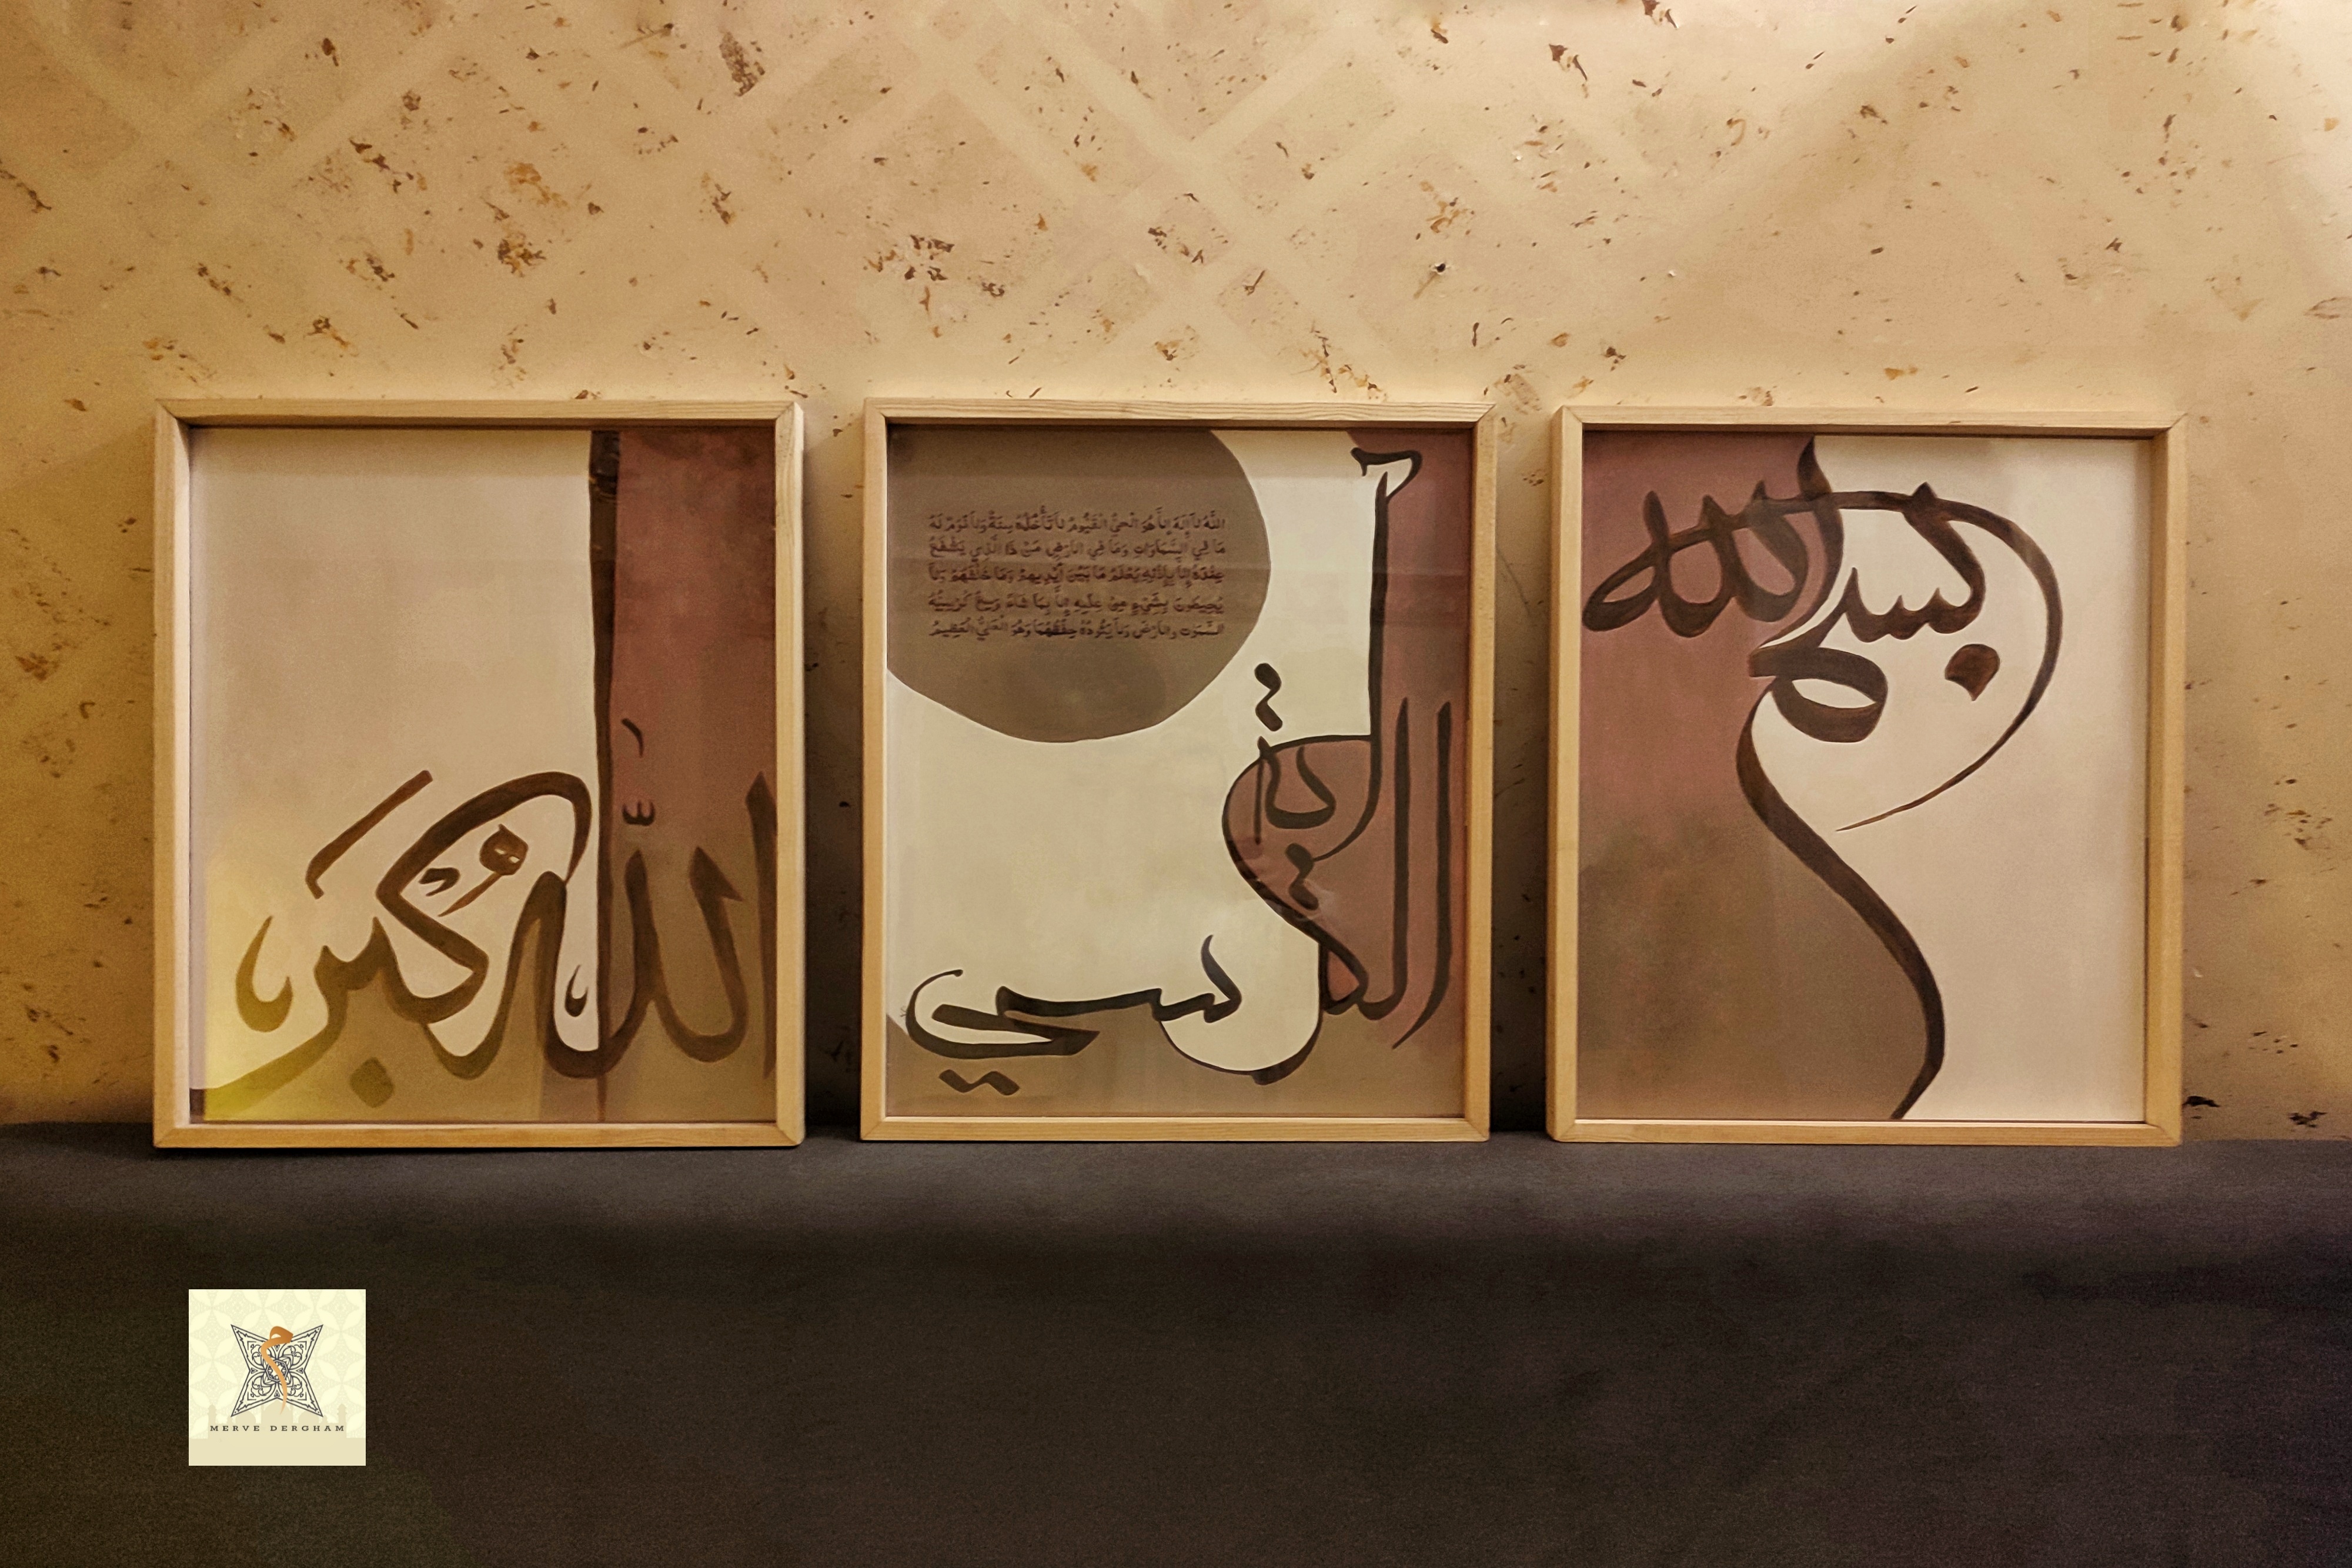 بسم الله
آية الكرسي
اللَّهُ لَا إِلَهَ إِلَّا هُوَ الْحَيُّ الْقَيُّومُ لَا تَأْخُذُهُ سِنَةٌ وَلَا نَوْمٌ لَهُ
مَا فِي السَّمَاوَاتِ وَمَا فِي الْأَرْضِ مَنْ ذَا الَّذِي يَشْفَعُ
عِنْدَهُ إِلَّا بِإِذْنِهِ يَعْلَمُ مَا بَيْنَ أَيْدِيهِمْ وَمَا خَلْفَهُمْ وَلَا
يُحِيطُونَ بِشَيْءٍ مِنْ عِلْمِهِ إِلَّا بِمَا شَاءَ وَسِعَ كُرْسِيُّهُ
السَّمَاوَاتِ وَالْأَرْضَ وَلَا يَئُودُهُ حِفْظُهُمَا وَهُوَ الْعَلِيُّ الْعَظِيمُ
اللّٰه أكبر
MERVE DERGHAM